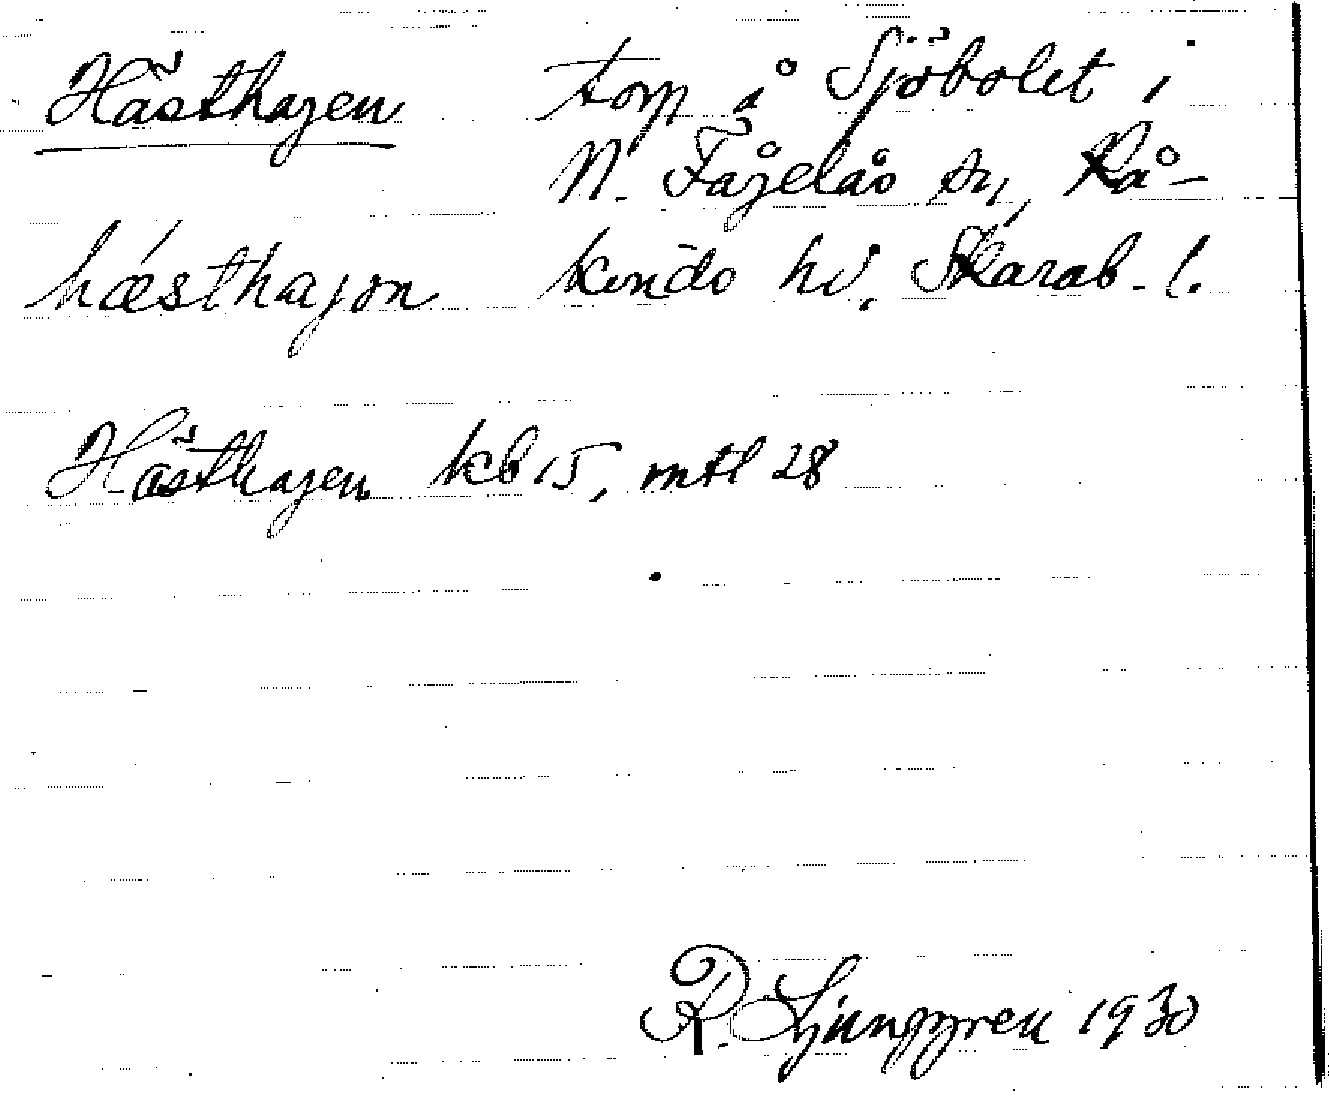 Hästhagen torp å Sjöbolet i
N. Fågelås sn, Kå-
hásthajon kinds hd, Skarab. l.
Hästhagen kb 15, mtl 28
R. Ljunggren 1930